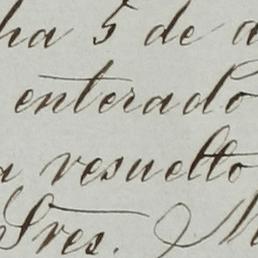 ha 5 de a
enterado
a resuelto
Sres. M